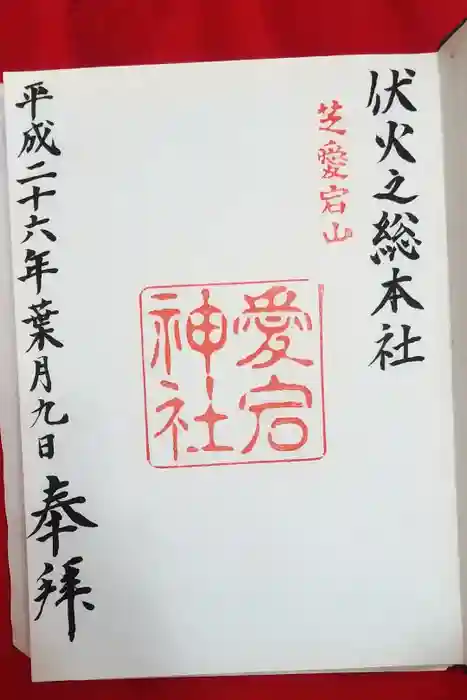 伏火之総本社
芝愛宕山
愛宕
神社
平成二十六年葉月九日
奉拝